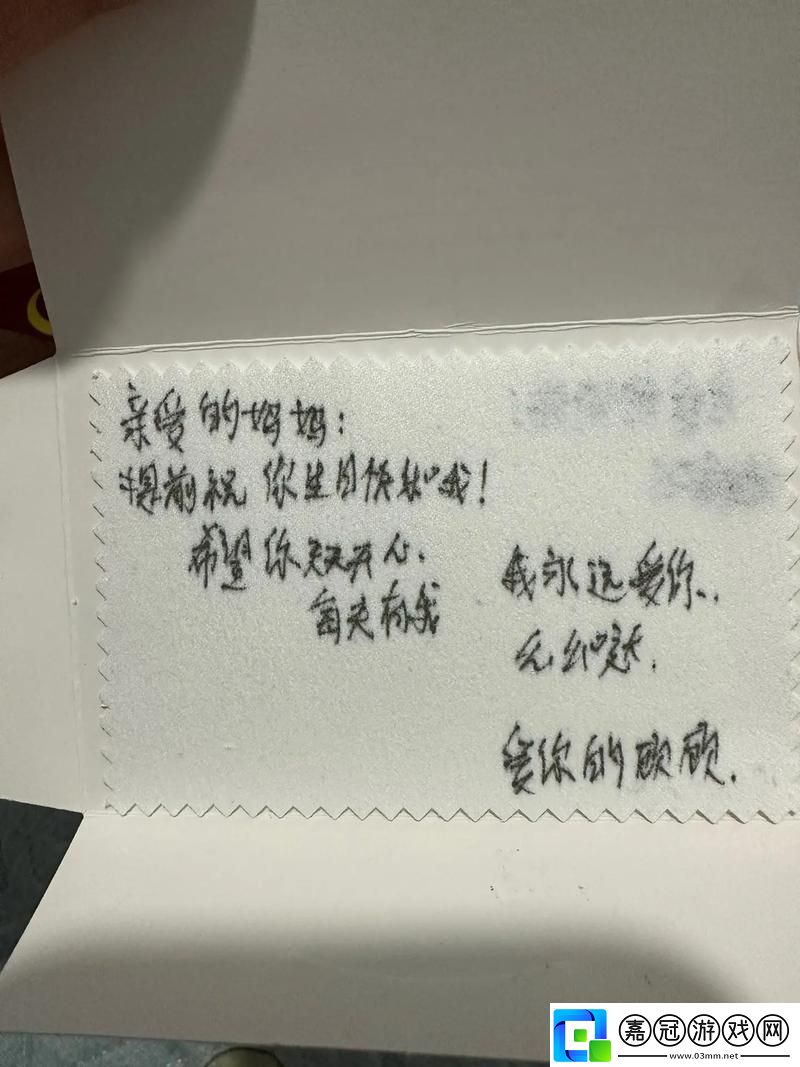 亲爱的妈妈：
提前祝你生日快乐哦！
希望你天天开心、
每天有我
我永远爱你.
爱你的顾顾.
嘉冠游戏网
www.03mm.net